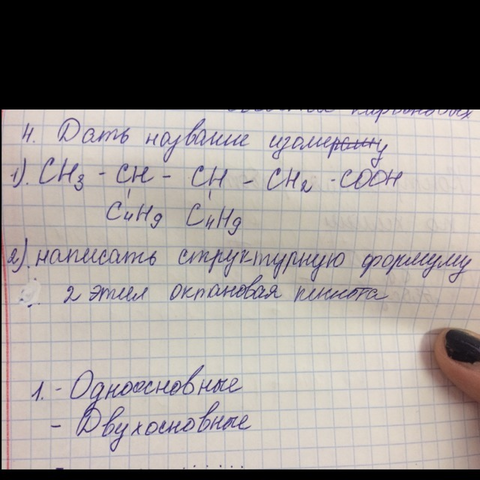 4. Дать название изомеру
1). CH3 - CH - CH - CH2 - COOH
C4H9 C4H9
2). написать структурную формулу
2 этил октановая кислота
1. - Одноосновные
- Двухосновные